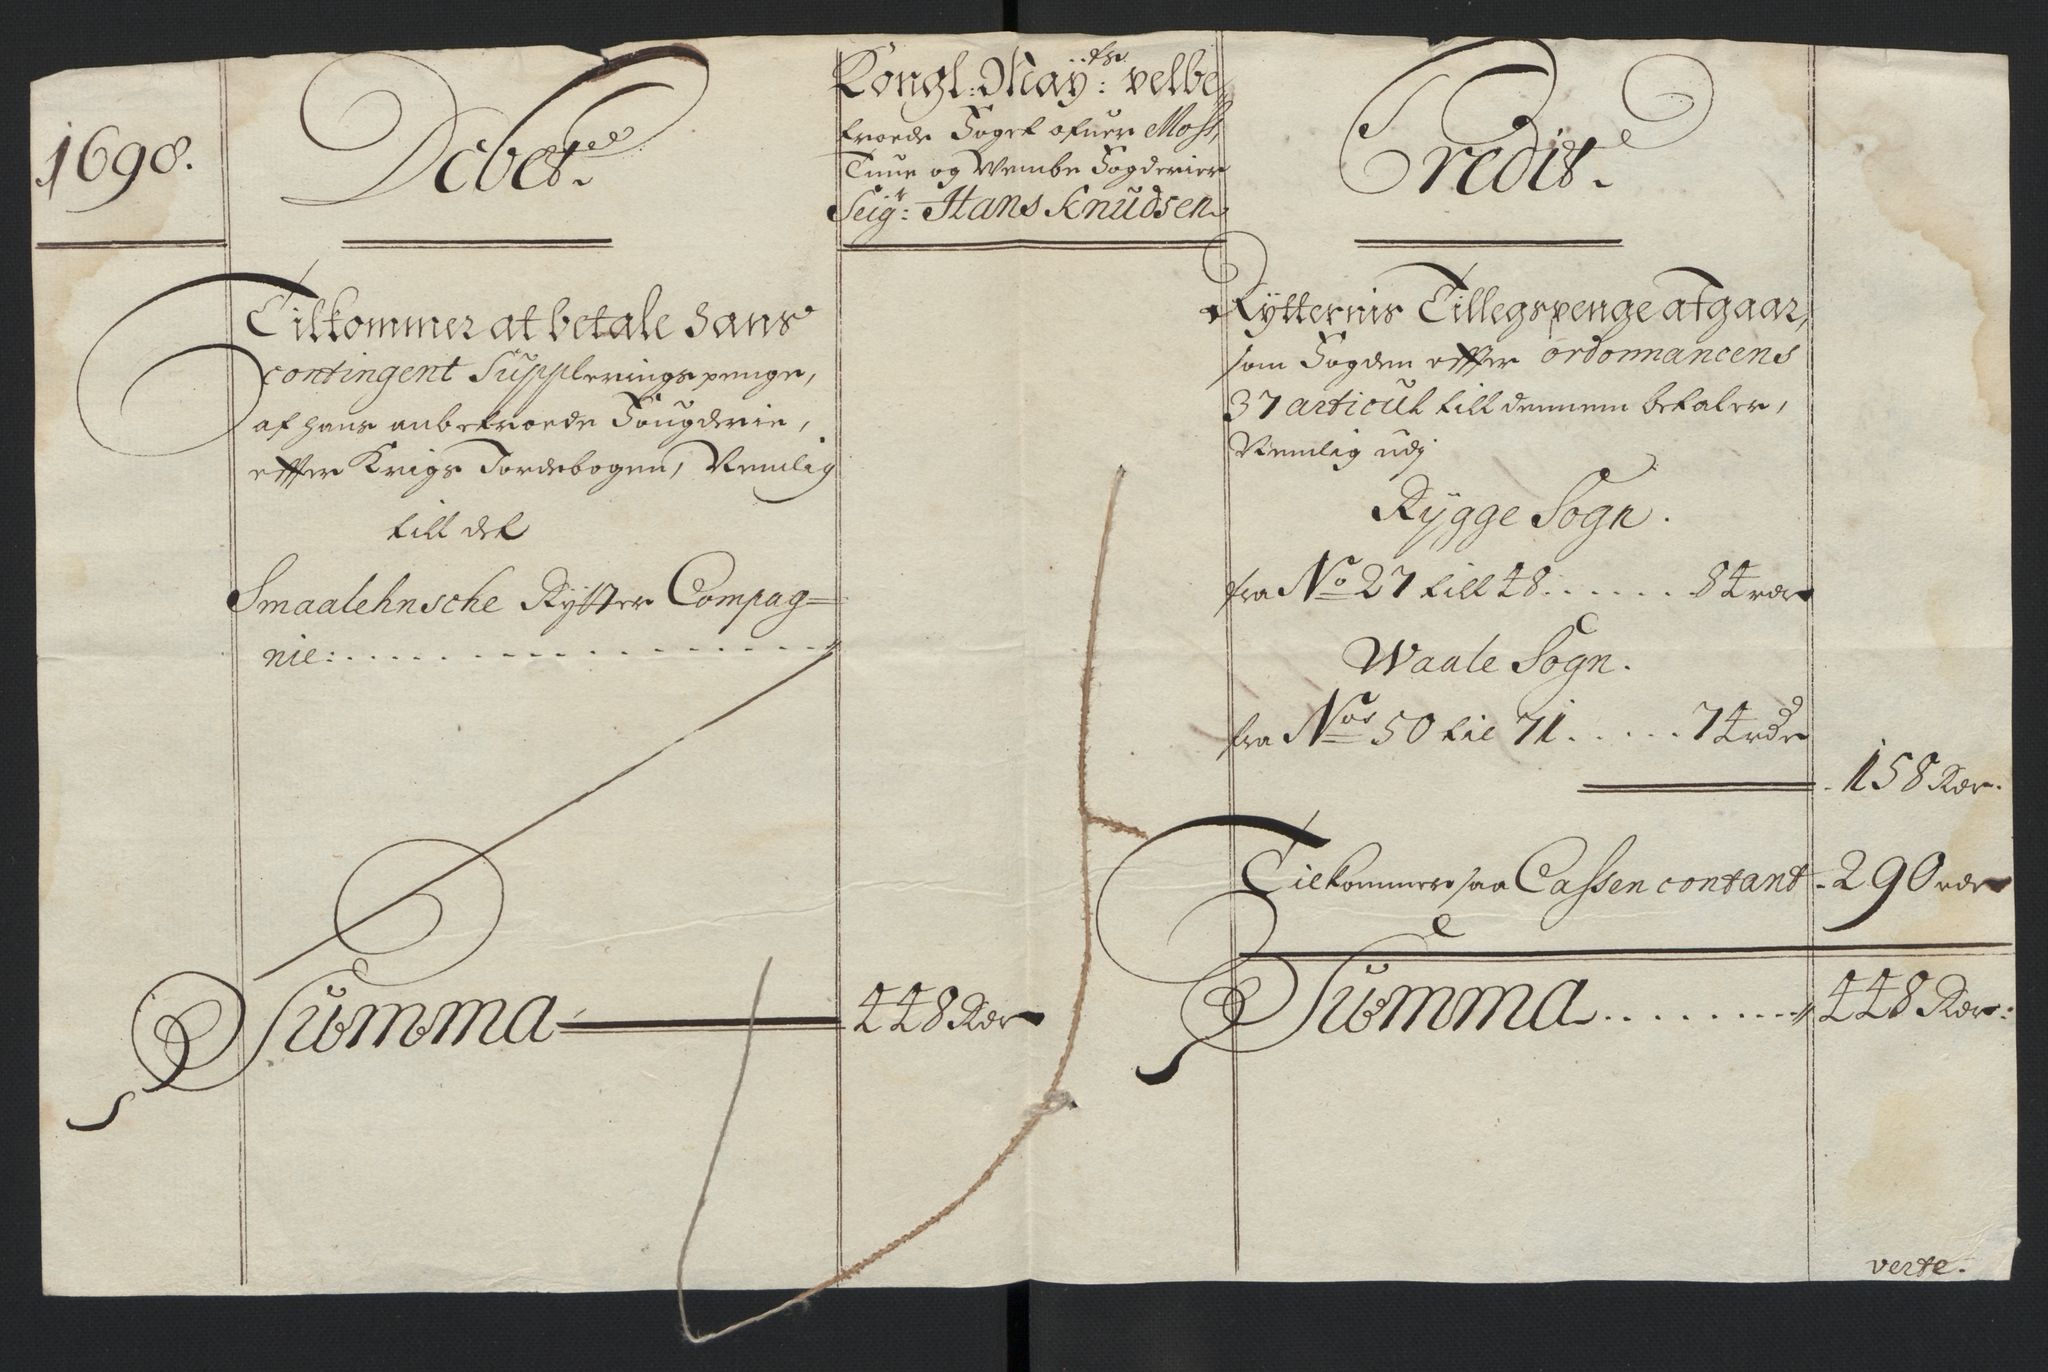 1698.
Debet
Kongl: May:ts velbe
troede Foget ofuer Moss,
Tune og Wembe Fogderier
Seig:r Hans Knudsen
Credit
Tilkommer at betale hans
contingent Supplerings penge,
af hans anbetroede Fougderie,
effter Krigs Jordebogen, Nemlig
till det
Smaalehnsche Rytter Compag=
nie:
Summa 448 Rdr
Rytternis Tillegspenge afgaar,
som Fogden effter ordonnancens
37 articul till dennem betaler,
Nemlig udj
Rygge Sogn.
fra No 27 till 48 . . . . . . 84 rdr
Waale Sogn.
fra Nos 50 til 71 . . . . . 74 rdr
158 Rdr.
Tilkommer saa Cassen contant 290 rdr
Summa . . . . . . . . 448 Rdr:
verte.